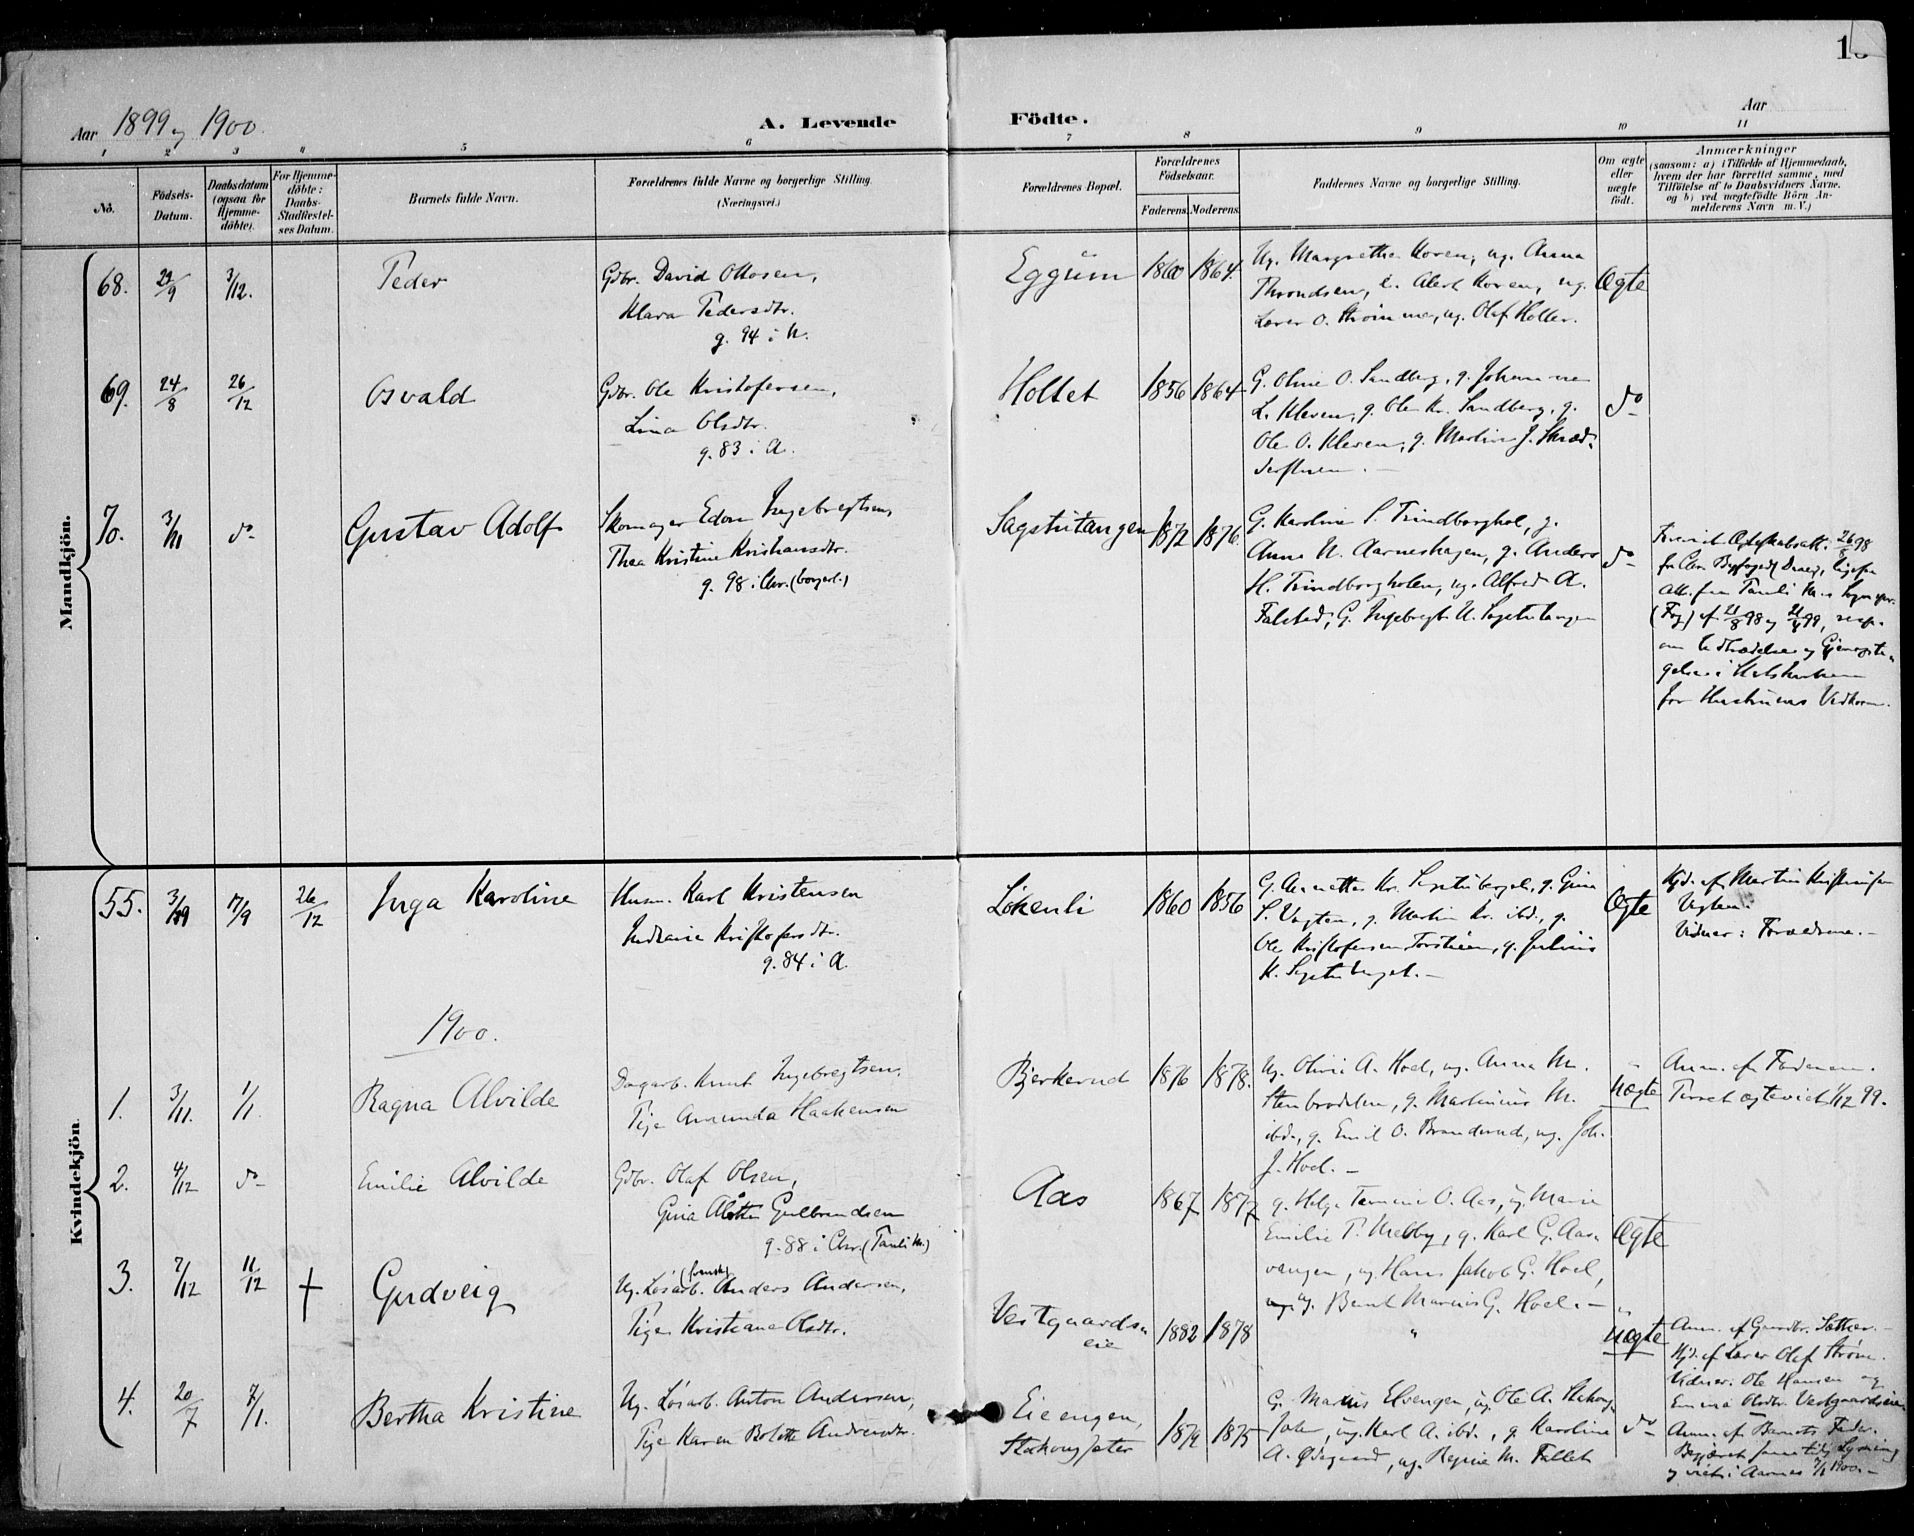 15
Aar 1899 og 1900.
A. Levende Födte.
Aar
1 2 3 4 5 6 7 8 9 10 11
No.
Födsels-Datum.
Daabsdatum (ogsaa for Hjemme-döbte).
For Hjemme-döbte: Daabs-Stadfæstel-ses Datum.
Barnets fulde Navn.
Forældrenes fulde Navne og borgerlige Stilling.
(Næringsvei.)
Forældrenes Bopæl.
Forældrenes Födselsaar.
Faderens. Moderens.
Faddernes Navne og borgerlige Stilling.
Om ægte eller uægte födt.
Anmærkninger
(saasom: a) i Tilfælde af Hjemmedaab,
hvem der har forrettet samme, med
Tilföielse af to Daabsvidners Navne.
og b) ved uægtefödte Börn An-
melderens Navn m. V.)
Mandkjön.
68. 29/9 3/12. Peder
Gdbr. David Ottosen,
Klara Pedersdtr.
g. 94 i N.
Eggum 1860 1864.
Ug. Margrethe Koren, ug. Anna
Throndsen, e. Alert Koren, ug.
Lærer O. Strömme, ug. Olaf Holler.
Ægte
69. 24/8 26/12 Osvald
Gdbr. Ole Kristofersen,
Lina Olsdtr.
g. 83 i A.
Holtet 1856 1864
G. Oline O. Sandberg, g. Johanne
L. Kleven, g. Ole Kr. Sandberg, g.
Ole O. Kleven, g. Martin J. Skræd-
derstuen. -
do
70. 3/11 do Gustav Adolf
Skomager Edon Ingebregtsen,
Thea Kristine Kristiansdtr.
g. 98 i Chr. (borgerl.)
Sagstutangen 1872 1876.
G. Karoline P. Trindborghol, g.
Anne N. Aarneshagen, g. Anders
H. Trindborgholen, ug. Alfred A.
Falstad, G. Ingebregt N. Sagstutangen
do
26/8 98
fra Chr. Byfoged
att. fra Pauli M.s Sognepr.
(Fog) af 21/8 98 og 21/4 99, resp.
om Udtrædelse og Gjenopta-
gelse i Statskirken
for Hustruens Vedkom.
Kvindekjön.
55. 17/9 26/12 Inga Karoline
Husm. Karl Kristensen
Indiane Kristofersdtr.
g. 84 i A.
Lökenli 1860 1856
G. Annette Kr. Sagstuberget, g. Gina
P. Vegten, g. Martin Kr. ibd., g.
Ole Kristofersen Torstuen, g. Julius
K. Sagstuberget. -
Ægte
Hjd. af Martin Kristiansen
Vegten.
Vidner: Forældrene. -
1900.
1. 3/11. 1/1. Ragna Alvilde
Dagarb. Knut Ingebregtsen,
Pige Amunda Haakensen
Bjerkerud 1876 1878.
Ug. Olivie A. Hoel, ug. Anna M.
Stenbraaten, g. Martinius M.
ibd., g. Emil O. Branderud, ug. Joh.
J. Hoel. -
Uægte
Anm. af Faderen.
1/12 99.
2. 4/12 do Emilie Alvilde
Gdbr. Olaf Olsen,
Gina Alette Gulbrandsen
g. 88 i Chr. (Pauli M.)
Aas 1867 1877
g. Helge O. Aas, ug. Marie
Emilie P. Melby, g. Karl G. Aas-
vangen, ug. Hans Jakob G. Hoel,
ug. Bernt Marius G. Hoel. -
Ægte
3. 7/12 11/12 † Gudveig
Ug. Løsarb. (svensk) Anders Andersen,
Pige Kristiane Olsdtr.
Vestgaards-
eie 1882 1878
"
Uægte
Anm. af Gaardbr. Sæther. -
Hjd. af Lærer Olaf Ström.
Vidner: Ole Hansen og
Emma Olsdtr. Vestgaardseie
4. 20/7 7/1. Bertha Kristine
Ug. Løsarb. Anton Andersen,
Pige Karen Bolette Andersdtr.
Eieengen,
1879 1875
G. Marius Elvengen, ug. Ole A.
ug. Karl A. ibd., g. Karoline
A. Ødegaard, ug. Regine M. Fallet
do
Anm. af Barnets Fader.
Lysning
og viet i Aarnes 7/1 1900. -